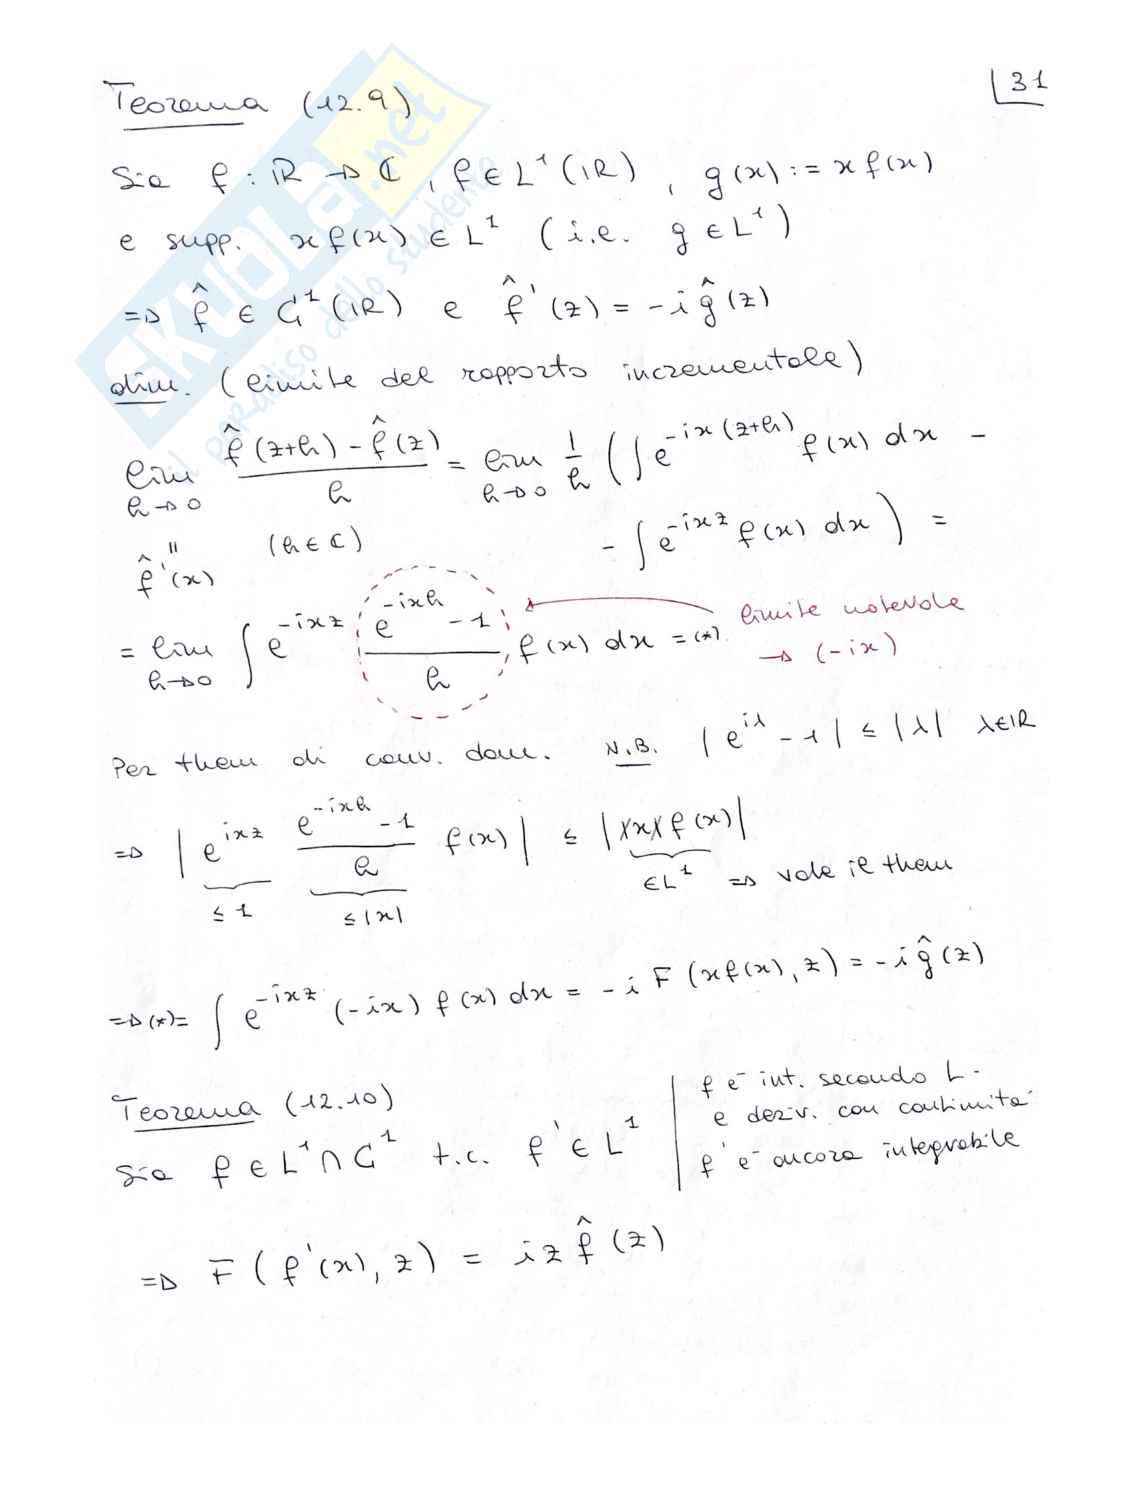 31
Teorema (12.9)
Sia f : ℝ → ℂ , f ∈ L¹(ℝ) , g(x) := x f(x)
e supp. x f(x) ∈ L¹ (i.e. g ∈ L¹)
⇒ f̂ ∈ C¹(ℝ) e f̂'(z) = -i ĝ(z)
dim. (limite del rapporto incrementale)
lim_{h→0} (f̂(z+h) - f̂(z))/h = lim_{h→0} 1/h ( ∫ e^{-ix(z+h)} f(x) dx -
- ∫ e^{-ixz} f(x) dx ) =
= f̂'(x) (h ∈ ℂ)
= lim_{h→0} ∫ e^{-ixz} (e^{-ixh} - 1)/h f(x) dx = (*).
limite notevole
→ (-ix)
Per them di conv. dom. N.B. |e^{iλ} - 1| ≤ |λ| λ∈ℝ
⇒ | e^{ixz} (e^{-ixh} - 1)/h f(x) | ≤ |x f(x)|
≤ 1 ≤ |x| ∈ L¹ ⇒ vale il them
⇒ (*) = ∫ e^{-ixz} (-ix) f(x) dx = -i F(x f(x), z) = -i ĝ(z)
Teorema (12.10)
Sia f ∈ L¹ ∩ C¹ t.c. f' ∈ L¹
f è int. secondo L.
e deriv. con continuità
f' è ancora integrabile
⇒ F(f'(x), z) = iz f̂(z)
SKUOLA.net
il paradiso dello studente